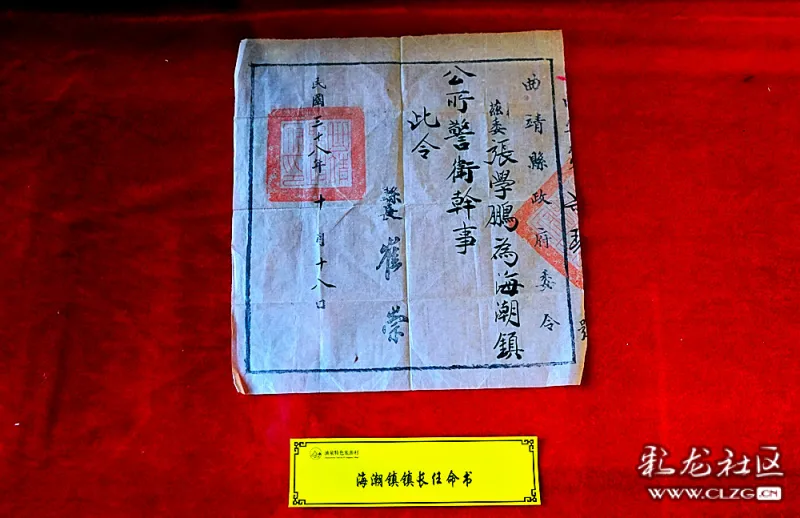 曲靖縣政府委令
茲委張學鵬為海潮鎮
公所警衛幹事
此令
縣長 崔崇
民國三十八年十月十八日
號
海潮镇镇长任命书
彩龙社区
WWW.CLZG.CN